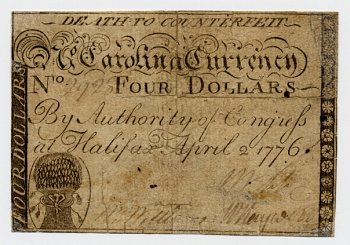 DEATH TO COUNTERFEIT
No. Carolina Currency
No. FOUR DOLLARS
By Authority of Congress
at Halifax April 2 1776.
FOUR DOLLARS